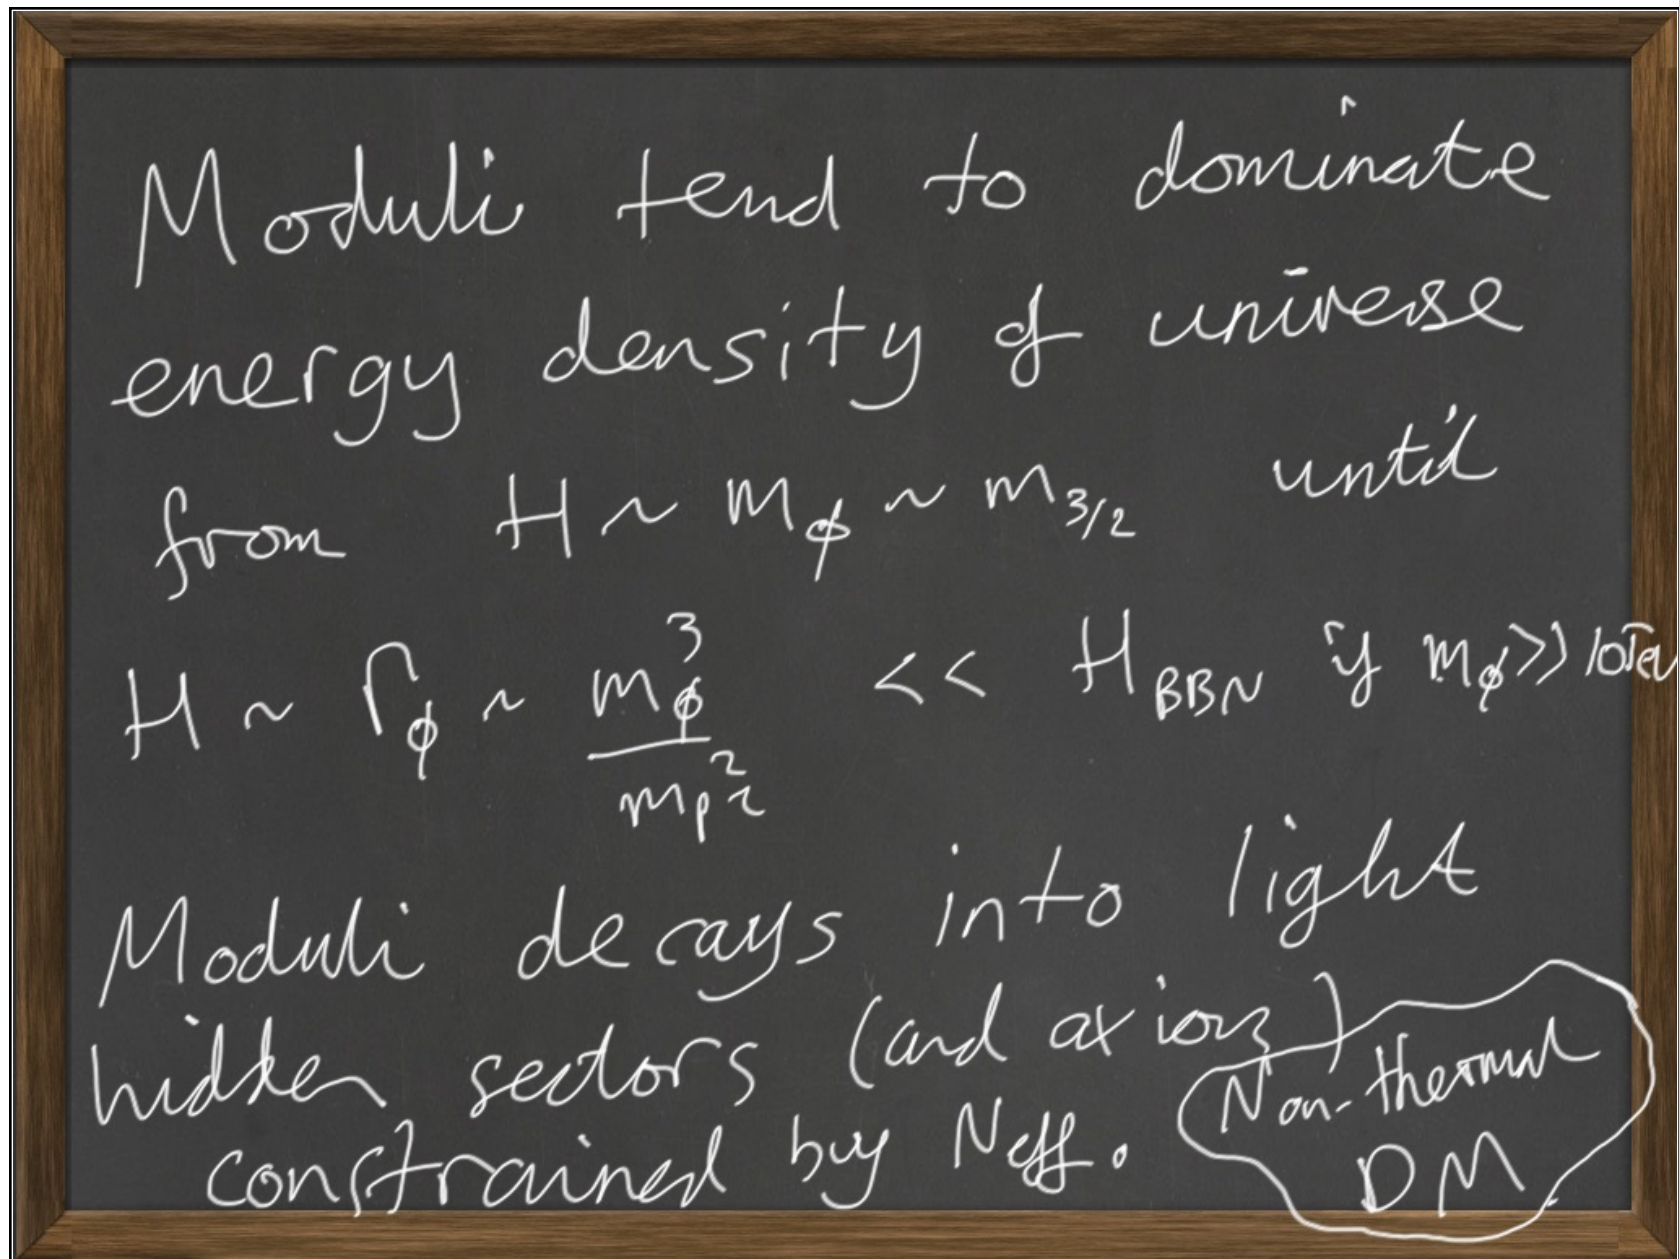 Moduli tend to dominate
energy density of universe
from H ~ mϕ ~ m3/2 until
H ~ Γϕ ~ mϕ^3 / mp^2 << HBBN if mϕ >> 10TeV
Moduli decays into light
hidden sectors (and axions)
constrained by Neff.
Non-thermal
DM